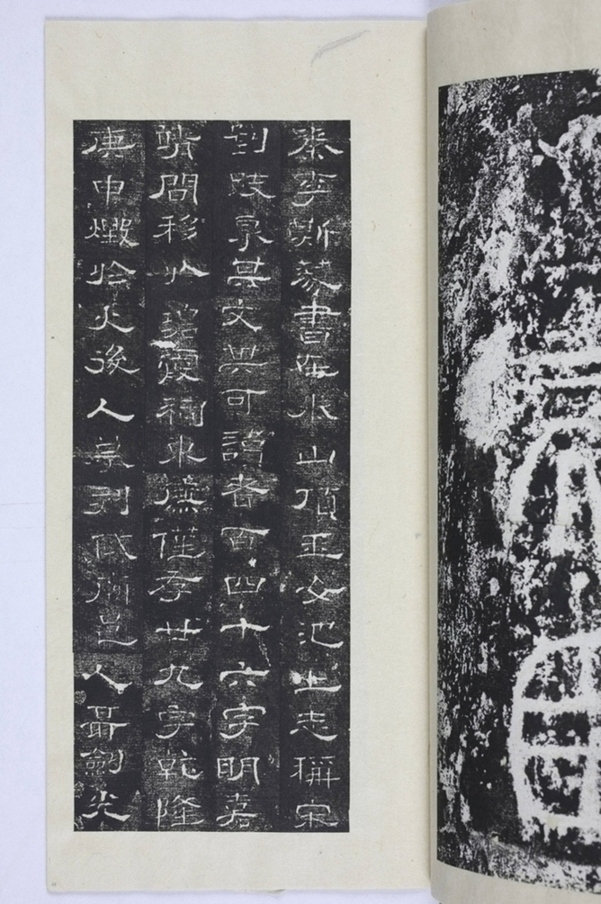 秦李斯篆書在山頂玉女池上志稱宋
劉跂其文可讀者百四十六字明嘉
靖間移於碧霞祠東廡僅存廿九字乾隆
庚申燬於火後人摹列邑人聶劍光